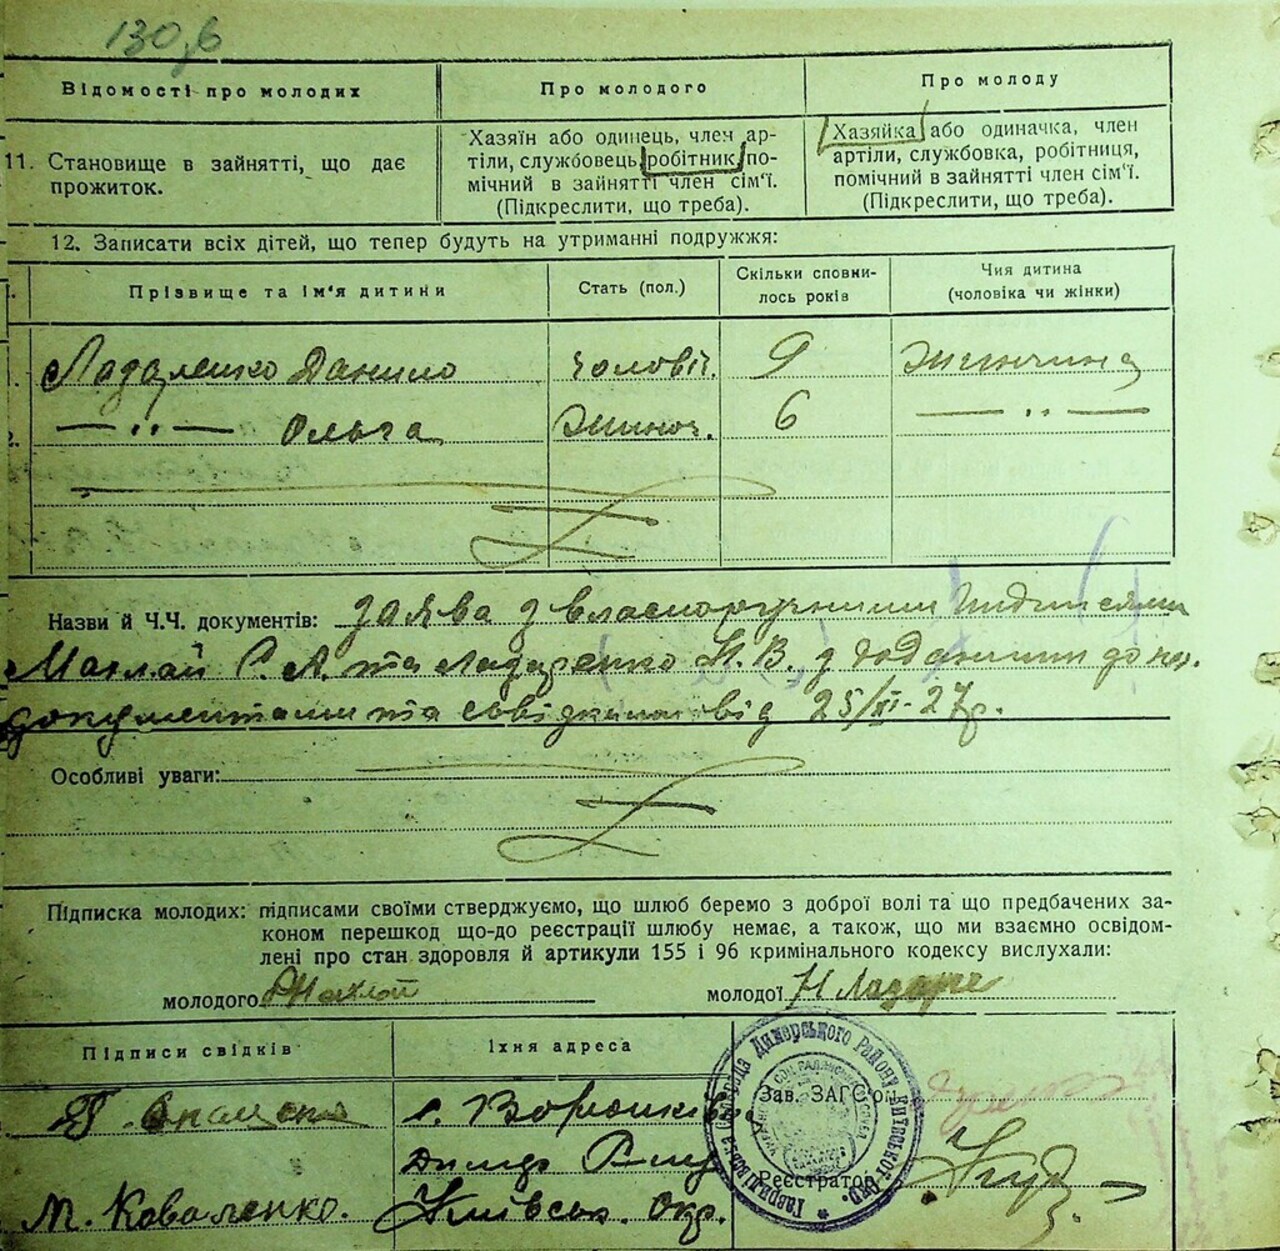 130,6
Відомості про молодих
Про молодого
Про молоду
11. Становище в зайнятті, що дає
прожиток.
Хазяїн або одинець, член ар-
тіли, службовець, робітник, по-
мічний в зайнятті член сім'ї.
(Підкреслити, що треба).
Хазяйка або одиначка, член
артіли, службовка, робітниця,
помічний в зайнятті член сім'ї.
(Підкреслити, що треба).
12. Записати всіх дітей, що тепер будуть на утриманні подружжя:
Прізвище та ім'я дитини
Стать (пол.)
Скільки сповни-
лось років
Чия дитина
(чоловіка чи жінки)
1. Лазаренко Данило чоловіч. 9 Жинчина
2. — „ — Ольга Жиноч. 6 — „ —
Назви й Ч.Ч. документів: заява з власноручними підписами
Маклай С. А. та Лазаренко Н. В. з доданими до неї
документами та свідками від 25/XI-27р.
Особливі уваги:
Підписка молодих: підписами своїми стверджуємо, що шлюб беремо з доброї волі та що предбачених за-
коном перешкод що-до реєстрації шлюбу немає, а також, що ми взаємно освідом-
лені про стан здоровля й артикули 155 і 96 кримінального кодексу вислухали:
молодого Маклай
молодої Н Лазаре
Підписи свідків
Їхня адреса
с.
Димер
М. Коваленко.
Київськ. Окр.
Зав. ЗАГС'ом
Реєстратор
Димерського Району Київської Окр.